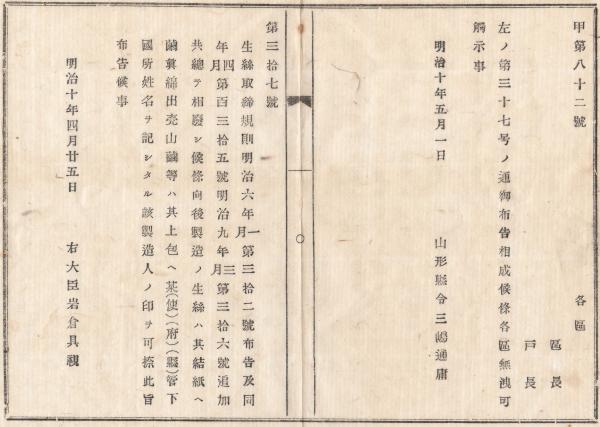 甲第八十二號
各區
區長
戸長
左ノ第三十七号ノ通御布告相成候條各區無洩可
觸示事
明治十年五月一日
山形縣令三嶋通庸
第三拾七號
生絲取締規則明治六年一月第三拾二號布告及同
年四月第百三拾五號明治九年三月第三拾六號追加
共總テ相廢シ候條向後製造ノ生絲ハ其結紙ヘ
繭眞綿出壳山繭等ハ其上包ヘ某(使)(府)(縣)管下
國所姓名ヲ記シタル該製造人ノ印ヲ可捺此旨
布告候事
明治十年四月廿五日
右大臣岩倉具視